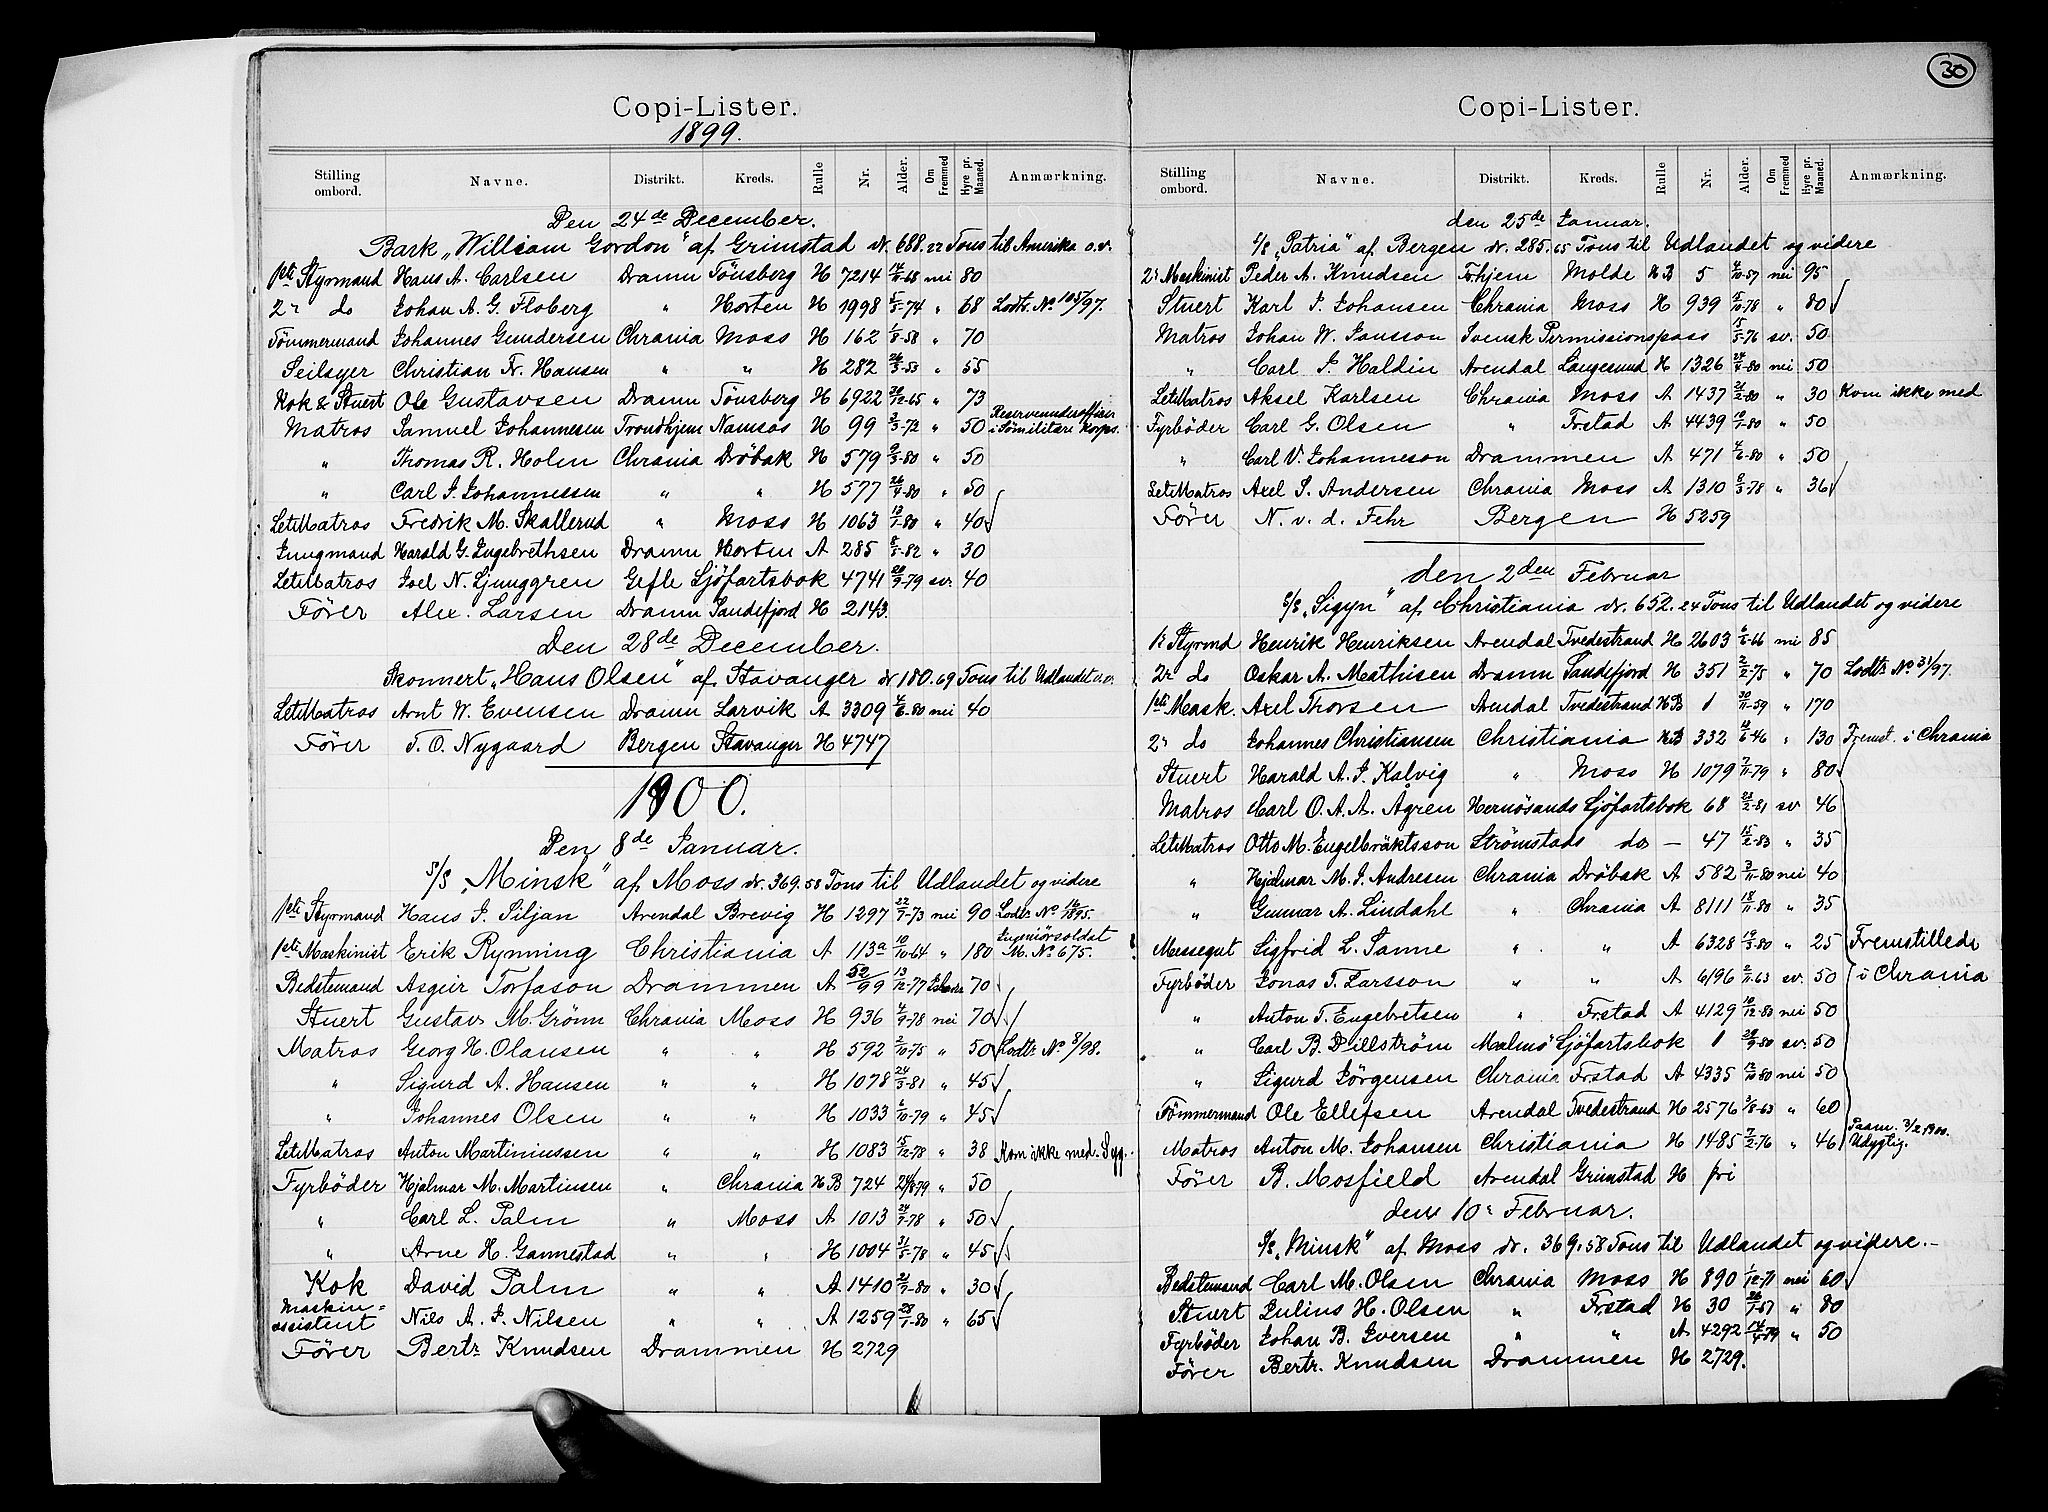 30
Copi-Lister.
1899.
Stilling ombord. Navne. Distrikt. Kreds. Rulle Nr. Alder. Om Fremmed Hyre pr. Maaned. Anmærkning.
Den 24de December.
Bark „William Gordon" af Grimstad dr. 688.22 Tons til Amerika o.v.
1ste Styrmand Hans A. Carlsen Dramn Tönsberg H 7214 nei 80
2n do Johan A. G. Floberg " Horten H 1998 5/5-74 " 68 Lodtr. No 105/97.
Tömmermand Johannes Gundersen Chrania Moss H 162 1/8-58 " 70
Seilsyer Christian Fr. Hansen " " H 282 26/3-53 " 55
Kok & Stuert Ole Gustavsen Dramn Tönsberg H 6922 30/12-65 " 73
Matros Samuel Johannesen Trondhjem Namsos H 99 3/3-72 " 50 Reserveunderofficer i Sömilitære Korps.
" Thomas R. Holm Chrania Dröbak H 579 9/3-80 " 50
" Carl J. Johannessen " " H 577 26/4-80 " 50
LetMatros Fredrik M. Skallerud " Moss H 1063 13/1-80 " 40
Jungmand Harald G. Engebrethsen Dramn Horten A 285 8/5-82 " 30
LetMatros Joel N. Ljunggren Gefle Sjöfartsbok 4741 20/9-79 sv. 40
Förer Alex. Larsen Dramn Sandefjord H 2143.
Den 28de December.
Skonnert „Hans Olsen" af Stavanger dr 180.69 Tons til Udlandet o.v.
LetMatros Arnt W. Evensen Dramn Larvik A 3309 4/6-80 nei 40
Förer T. O. Nygaard Bergen Stavanger H 4747
1900.
Den 8de Januar.
S/S „Minsk" af Moss dr. 369.58 Tons til Udlandet og videre
1ste Styrmand Hans J. Siljan Arendal Brevig H 1297 22/7-73 nei 90 Lodtr. No 16/1895.
1ste Maskinist Erik Rynning Christiania A 113a 10/10-64 " 180 Ingeniörsoldat M. No 675.
Bedstemand Asgeir Torfason Drammen A 52/99 13/12-77 70
Stuert Gustav M. Grönn Chrania Moss H 936 4/9-78 nei 70
Matros Georg H. Olausen " " H 592 2/10-75 " 50 Lodtr. No 8/98.
" Sigurd A. Hansen " " H 1078 24/3-81 " 45
" Johannes Olsen " " H 1033 6/10-79 " 45
LetMatros Anton Martiniussen " " H 1083 15/12-78 " 38 Kom ikke med. Syg.
Fyrböder Hjalmar M. Martinsen " Chrania HB 724 24/8 79 " 50
" Carl L. Palm " Moss A 1013 24/7-78 " 50
" Arne H. Gannestad " " H 1004 31/5-78 " 45
Kok David Palm " " A 1410 21/9-80 " 30
Maskin=assistent Nils A. J. Nilsen " " A 1259 28/1-80 " 65
Förer Bertr. Knudsen Drammen H 2729
Copi-Lister.
Stilling ombord. Navne. Distrikt. Kreds. Rulle Nr. Alder. Om Fremmed Hyre pr. Maaned. Anmærkning.
den 25de Januar.
S/S „Patria" af Bergen dr. 285.65 Tons til Udlandet og videre
2n Maskinist Peder A. Knudsen Trhjem Molde HB 5 4/10-57 nei 95
Stuert Karl J. Johansen Chrania Moss H 939 15/10-78 " 80
Matros Johan W. Jansson Svensk Permissionspass 15/5-76 sv. 50
" Carl J. Haldin Arendal Langesund H 1326 24/7-80 nei 50
LetMatros Aksel Karlsen Chrania Moss A 1437 21/2-80 " 30 Kom ikke med
Fyrböder Carl G. Olsen " Frstad A 4439 10/1-80 " 50
" Carl V. Johanneson Drammen A 471 4/6-80 " 50
LetMatros Axel S. Andersen Chrania Moss A 1310 8/3-78 " 36
Förer N. v. d. Fehr Bergen H 5259
den 2den Februar
S/S „Sigyn" af Christiania dr. 652.24 Tons til Udlandet og videre
1e Styrmd Henrik Henriksen Arendal Tvedestrand H 2603 6/5-66 nei 85
2n do Oskar A. Mathisen Dramn Sandefjord H 351 2/2-75 " 70 Lodtr No 31/97.
1ste Mask. Axel Thorsen Arendal Tvedestrand HB 1 30/11-59 " 170
2n do Johannes Christiansen Christiania HB 332 18/6-46 " 130 Fremst. i Chrania
Stuert Harald A. J. Kalvig " Moss H 1079 7/11-79 " 80
Matros Carl O. A. A. Ågren Hernösands Sjöfartsbok 68 23/2-81 sv 46
LetMatros Otto M. Engelbräktsson Strömstads do — 47 15/2-83 " 35
" Hjalmar M. J. Andresen Chrania Dröbak A 582 3/11-80 nei 40
" Gunnar A. Lindahl " Chrania A 8111 18/11-80 " 35
Messegut Sigfrid L. Sanne " " A 6328 19/3-80 " 25 Fremstillede i Chrania
Fyrböder Jonas T. Larsson " " A 6196 2/11-63 sv. 50
" Anton T. Engebretsen " Frstad A 4129 10/12-80 nei 50
" Carl B. Dillström Malmö Sjöfartsbok 1 29/9-80 sv. 50
" Sigurd Jörgensen Chrania Frstad A 4335 12/10-80 nei 50
Tömmermand Ole Ellefsen Arendal Tvedestrand H 2576 3/8-63 " 60
Matros Anton M. Johansen Christiania H 1485 7/2-76 " 46 Paam. 3/2 1900. Udygtig.
Förer B. Mosfield Arendal Grimstad H fri
den 10n Februar.
S/S „Minsk" af Moss dr. 369.58 Tons til Udlandet og videre.—
Bedstemand Carl M. Olsen Chrania Moss H 890 1/12-71 nei 60
Stuert Julius H. Olsen " Frstad H 30 26/1-67 " 80
Fyrböder Johan B. Iversen " " A 4292 " 50
Förer Bertr. Knudsen Drammen H 2729.